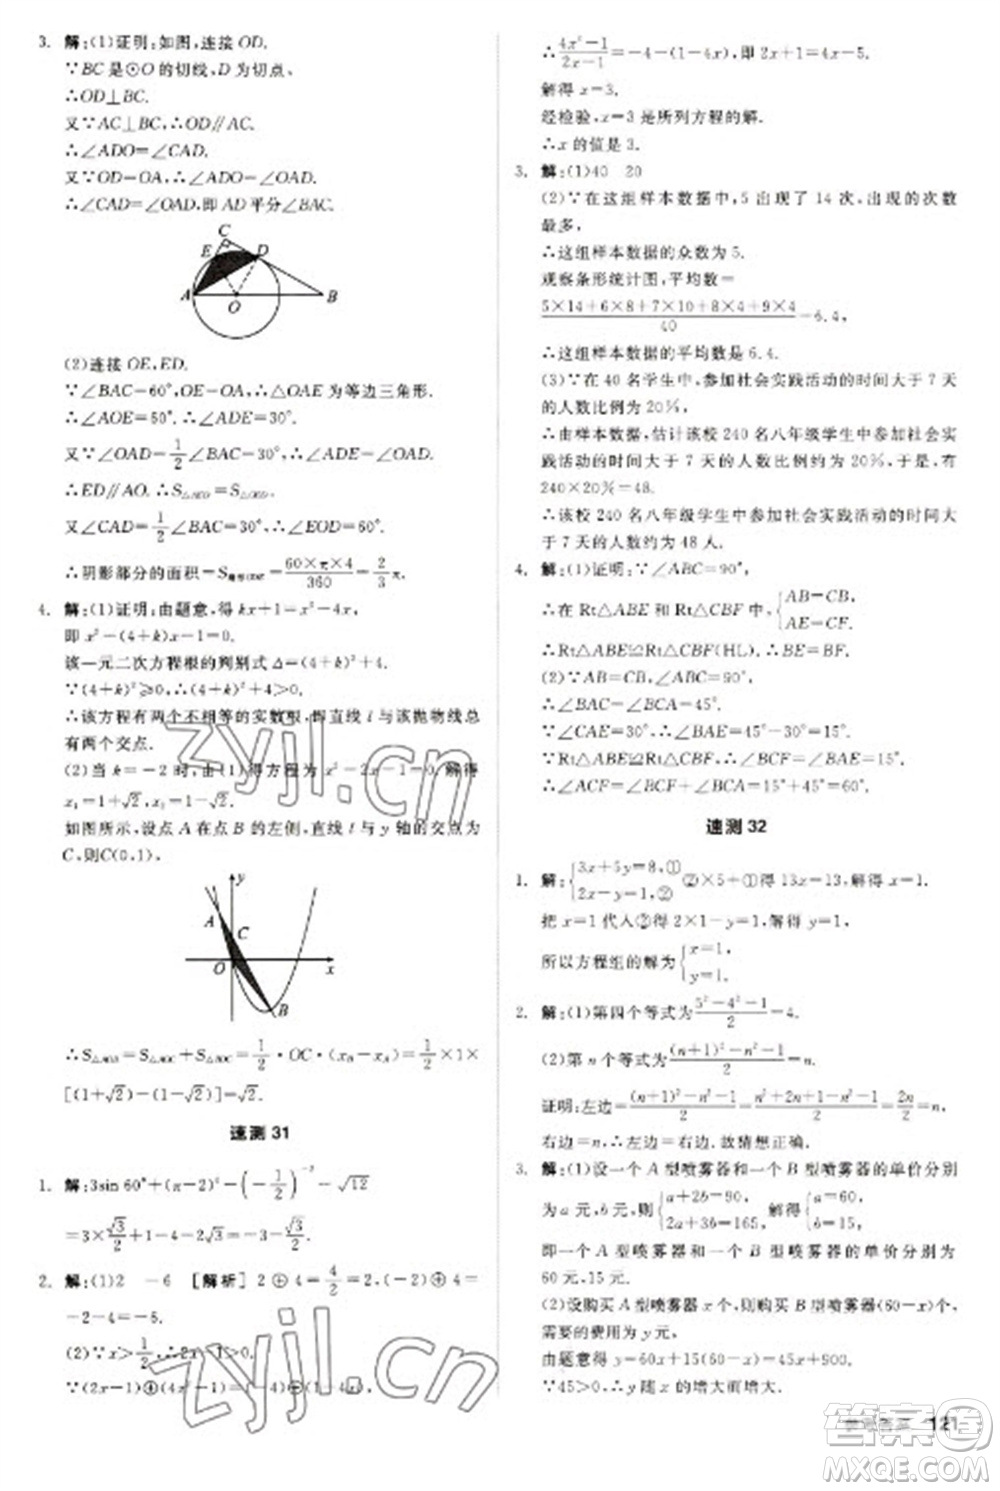 3. 解:(1)证明:如图,连接 OD.
∵BC 是⊙O 的切线,D 为切点、
∴OD⊥BC.
又∵AC⊥BC,∴OD∥AC.
∴∠ADO=∠CAD.
又∵OD=OA,∴∠ADO=∠OAD.
∴∠CAD=∠OAD,即 AD 平分∠BAC.
C
E D
A O B
(2)连接 OE,ED.
∵∠BAC=60°,OE=OA,∴△OAE 为等边三角形.
∴∠AOE=60°.∴∠ADE=30°.
又∵∠OAD=1/2∠BAC=30°,∴∠ADE=∠OAD.
∴ED∥AO.∴S△AED=S△OED.
又∠CAD=1/2∠BAC=30°,∴∠EOD=60°.
∴阴影部分的面积=S扇形ODE=60×π×4/360=2/3π.
4. 解:(1)证明:由题意,得 kx+1=x²-4x,
即 x²-(4+k)x-1=0,
该一元二次方程根的判别式 Δ=(4+k)²+4.
∵(4+k)²≥0,∴(4+k)²+4>0.
∴该方程有两个不相等的实数根,即直线 l 与该抛物线总
有两个交点.
(2)当 k=-2 时,由(1)得方程为 x²-2x-1=0.解得
x₁=1+√2,x₂=1-√2.
如图所示,设点 A 在点 B 的左侧,直线 l 与 y 轴的交点为
C,则C(0,1).
y
A
C
O x
B
∴S△AOB=S△AOC+S△BOC=1/2·OC·(xB-xA)=1/2×1×
[(1+√2)-(1-√2)]=√2.
速测 31
1. 解:3sin 60°+(π-2)⁰-(-1/2)⁻²-√12
=3×√3/2+1-4-2√3=-√3/2-3.
2. 解:(1)2 -6 [解析] 2⊕4=4/2=2,(-2)⊕4=
-2-4=-6.
(2)∵x>1/2,∴2x-1>0.
∵(2x-1)⊕(4x²-1)=-4-(1-4x),
∴(4x²-1)/(2x-1)=-4-(1-4x),即 2x+1=4x-5.
解得 x=3.
经检验,x=3 是所列方程的解.
∴x 的值是 3.
3. 解:(1)40 20
(2)∵在这组样本数据中,5 出现了 14 次,出现的次数
最多,
∴这组样本数据的众数为 5.
观察条形统计图,平均数=
(5×14+6×8+7×10+8×4+9×4)/40=6.4,
∴这组样本数据的平均数是 6.4.
(3)∵在 40 名学生中,参加社会实践活动的时间大于 7 天
的人数比例为 20%,
∴由样本数据,估计该校 240 名八年级学生中参加社会实
践活动的时间大于 7 天的人数比例约为 20%,于是,有
240×20%=48.
∴该校 240 名八年级学生中参加社会实践活动的时间大
于 7 天的人数约为 48 人.
4. 解:(1)证明:∵∠ABC=90°,
∴在 Rt△ABE 和 Rt△CBF 中,{AB=CB, AE=CF.
∴Rt△ABE≌Rt△CBF(HL).
(2)∵AB=CB,∠ABC=90°,
∴∠BAC=∠BCA=45°.
∵∠CAE=30°,∴∠BAE=45°-30°=15°.
∵Rt△ABE≌Rt△CBF,∴∠BCF=∠BAE=15°.
∴∠ACF=∠BCF+∠BCA=15°+45°=60°.
速测 32
1. 解:{3x+5y=8,① 2x-y=1,② ②×5+①得 13x=13,解得 x=1.
把 x=1 代人②得 2×1-y=1,解得 y=1.
所以方程组的解为{x=1, y=1.
2. 解:(1)第四个等式为(5²-4²-1)/2=4.
(2)第 n 个等式为((n+1)²-n²-1)/2=n.
证明:左边=((n+1)²-n²-1)/2=(n²+2n+1-n²-1)/2=2n/2=n,
右边=n,∴左边=右边,故猜想正确.
3. 解:(1)设一个 A 型喷雾器和一个 B 型喷雾器的单价分别
为 a 元,b 元,则{a+2b=90, 2a+3b=165,解得{a=60, b=15.
即一个 A 型喷雾器和一个 B 型喷雾器的单价分别为
60 元,15 元.
(2)设购买 A 型喷雾器 x 个,则购买 B 型喷雾器(60-x)个,
需要的费用为 y 元.
由题意得 y=60x+15(60-x)=45x+900.
∵45>0,∴y 随 x 的增大而增大.
参考答案 121
zyjl.cn
zyjl.cn
答案圈
MXQE.COM